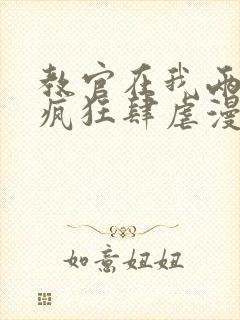 教官在我两
疯狂肆虐漫
如意妞妞